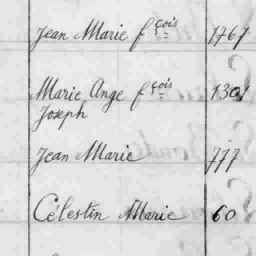 Jean Marie fçois 1767
Marie Ange fçois 1301
Joseph
Jean Marie 777
Célestin Marie 60